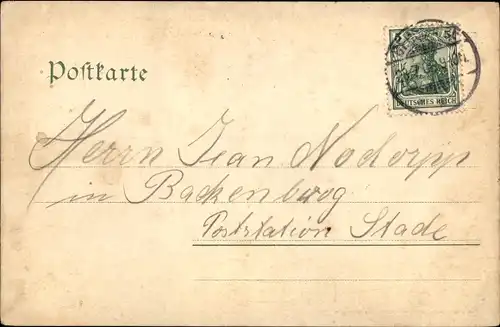 Postkarte
DEUTSCHES REICH
Herrn Jean Nodorpp
in Backenbrog
Poststation Stade